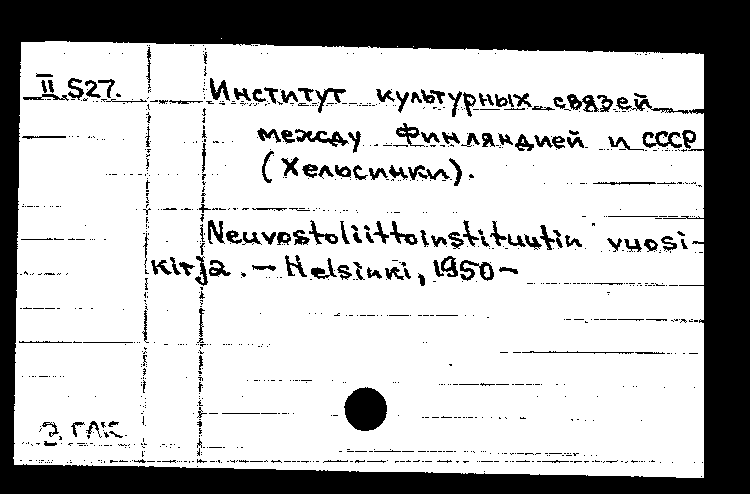 II S27. Институт культурных связей
между Финляндией и СССР
(Хельсинки).
Neuvostoliittoinstituutin vuosi-
kirja. — Helsinki, 1950—
Э. ГАК